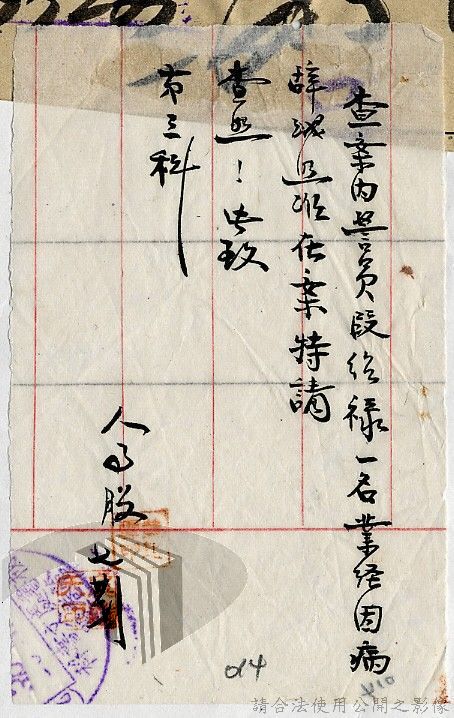 查案內警員段紹祿一名業経因病
辞職照准在案特請
查照！此致
第三科
人事股 七月
d14
410
請合法使用公開之影像